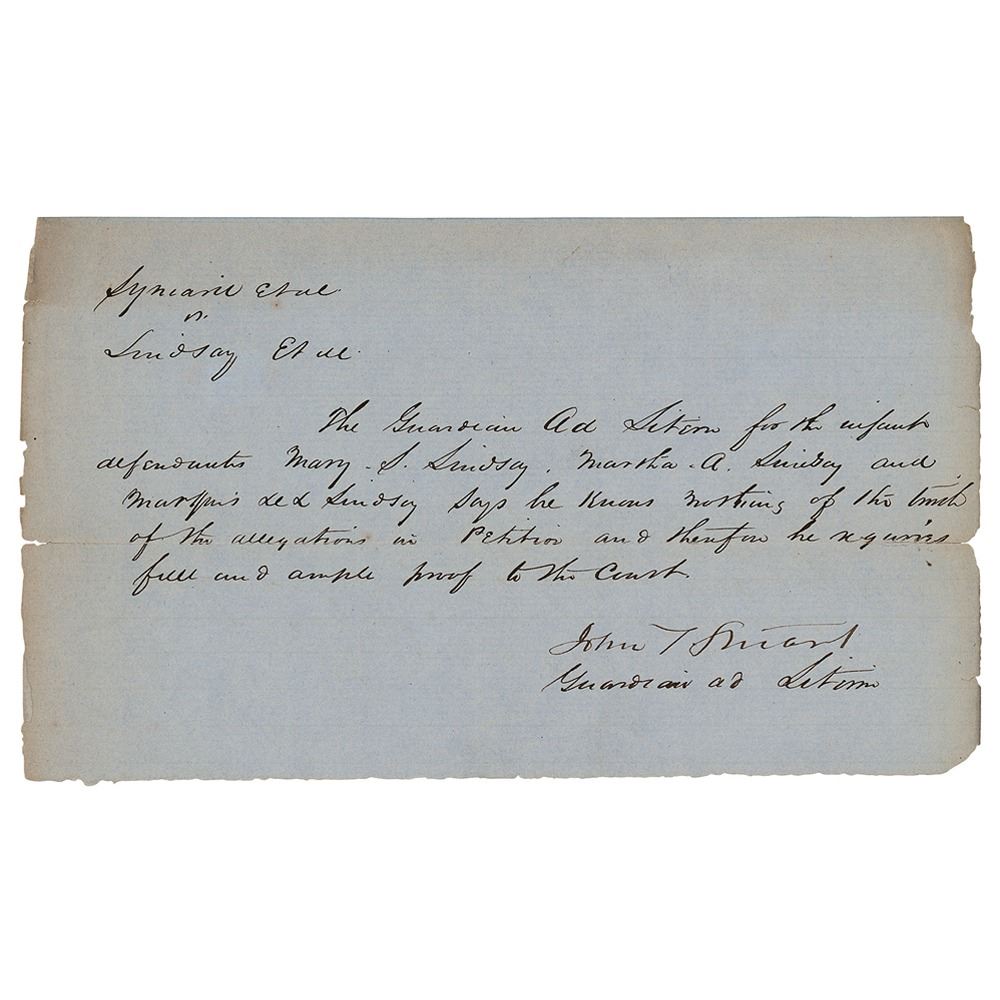 et al
vs.
Lindsay Et al.
The Guardian Ad Litem for the infant
defendants Mary S. Lindsay, Martha A. Lindsay and
Marquis Lindsay says he knows nothing of the truth
of the allegations in Petition and therefore he requires
full and ample proof to the Court.
John T Stuart
Guardian ad Litem